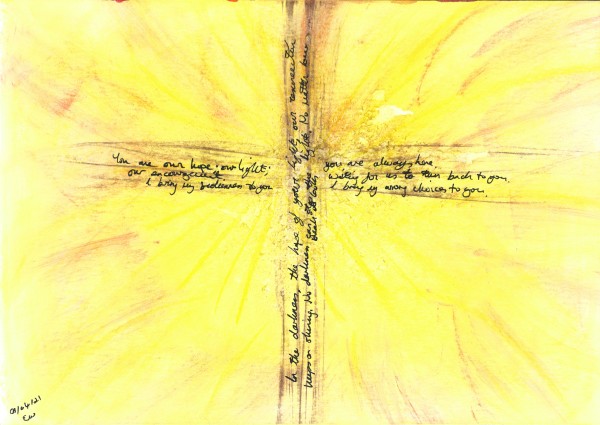 You are our hope, our light,
our encouragement
I bring my brokenness to you
you are always here,
waiting for us to turn back to you.
I bring my wrong choices to you.
In the darkness, the hope of your light, our resurrection
keeps on shining. No darkness can stop your light. No
death
01/06/21
EW